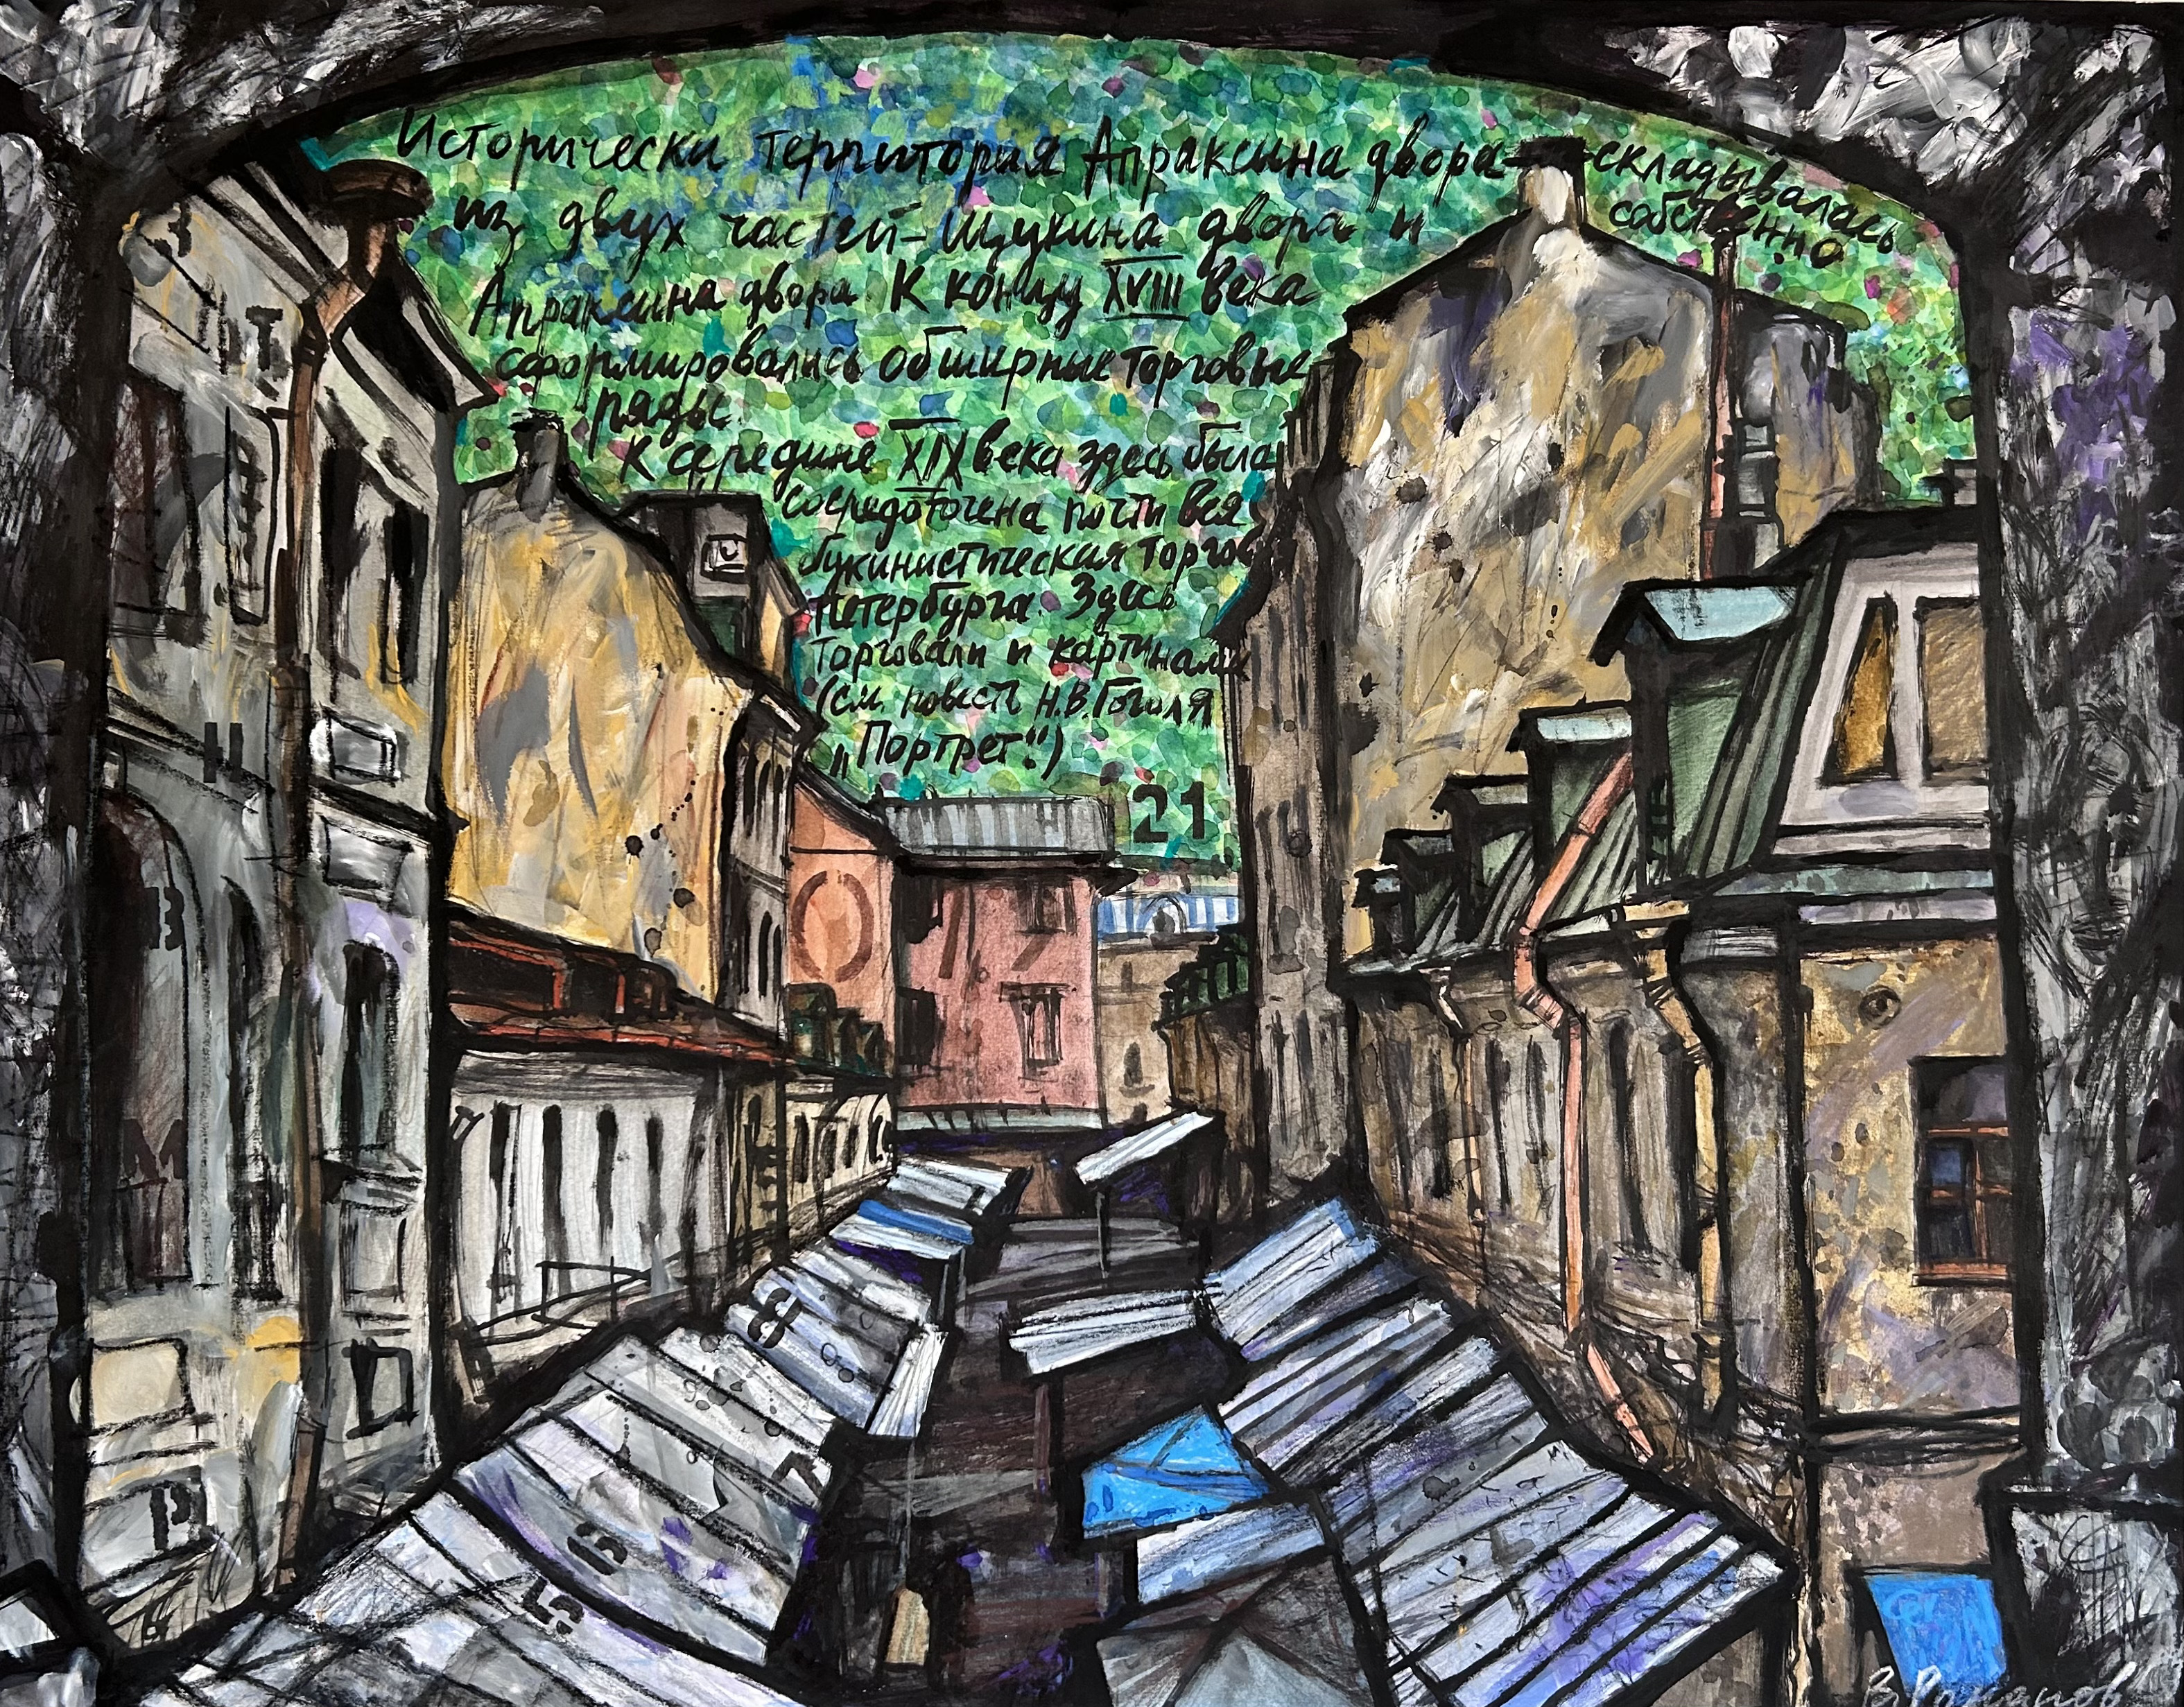 Исторически территория Апраксина двора складывалась
из двух частей – Щукина двора и собственно
Апраксина двора. К концу XVIII века
сформировались обширные торговые
ряды.
К середине XIX века здесь была
сосредоточена почти вся
букинистическая торгов
Петербурга. Здесь
торговали и картинами
(см. повесть Н.В. Гоголя
„Портрет".)
21